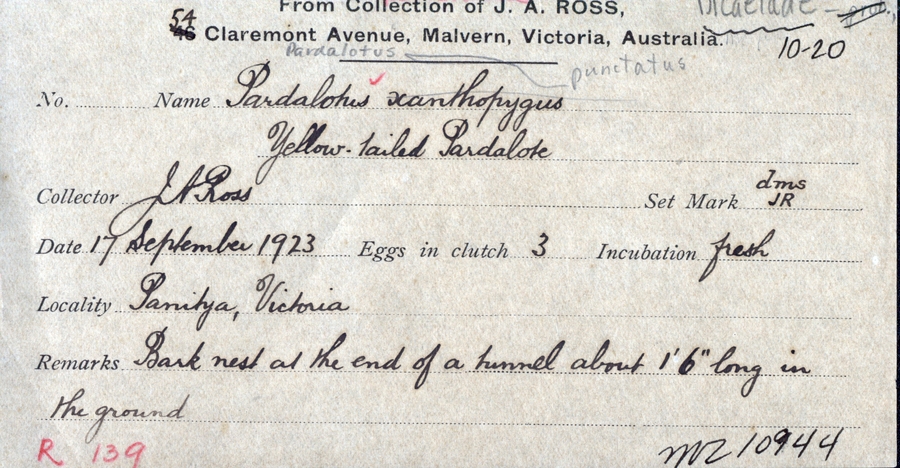 From Collection of J. A. ROSS,
54 48 Claremont Avenue, Malvern, Victoria, Australia.
10-20
Pardalotus punctatus
No. Name Pardalotus xanthopygus
Yellow-tailed Pardalote
Collector J A Ross Set Mark dms JR
Date 17 September 1923 Eggs in clutch 3 Incubation fresh
Locality Panitya, Victoria
Remarks Bark nest at the end of a tunnel about 1'6" long in
the ground
R 139 10944